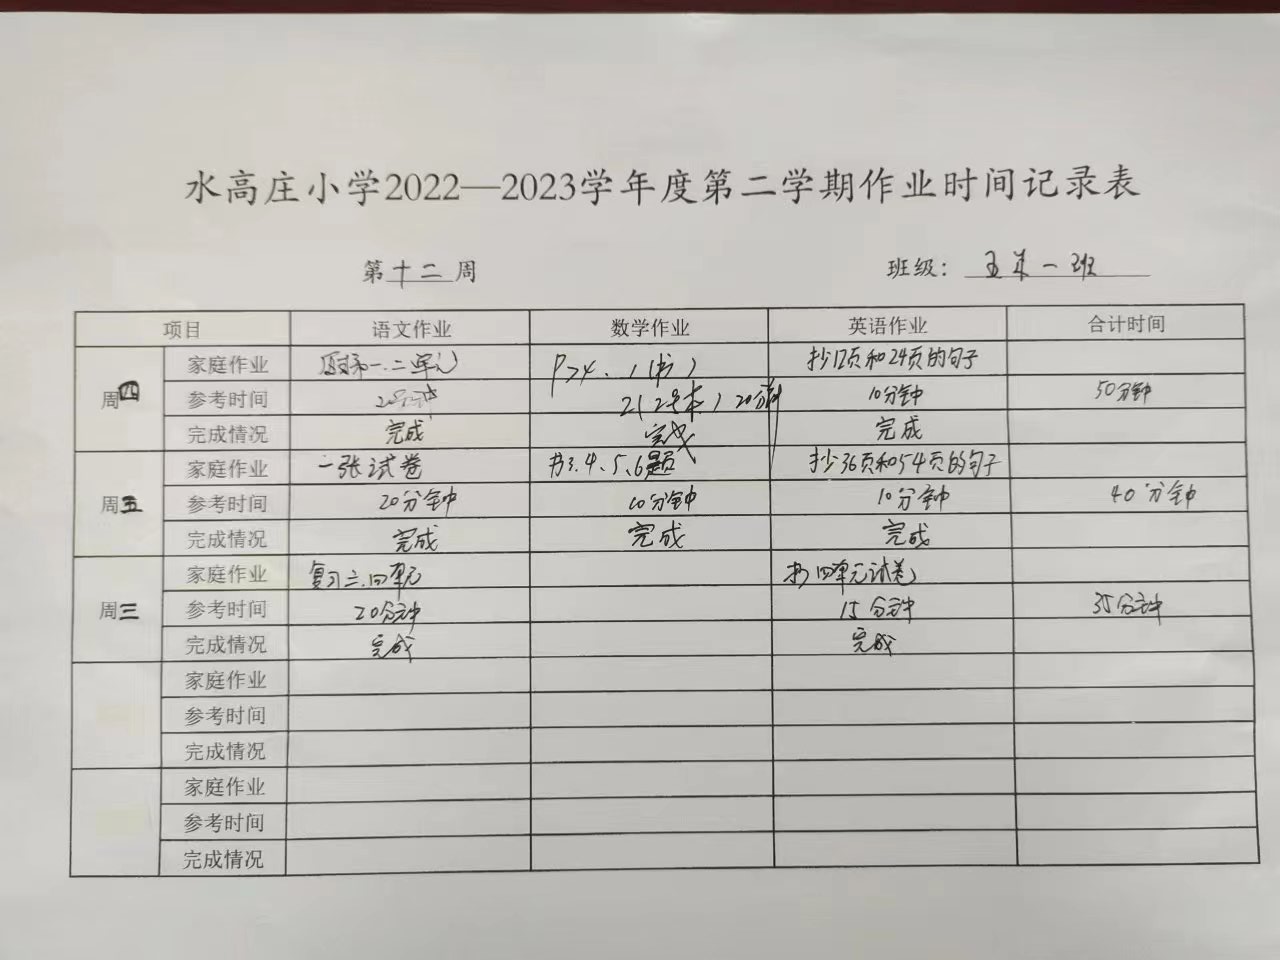 水高庄小学2022—2023学年度第二学期作业时间记录表
第十二周 班级：五年一班
项目 语文作业 数学作业 英语作业 合计时间
周四 家庭作业 一.二单元 P24.1(书) 抄12页和24页的句子
参考时间 20分钟 2(2号本)20分钟 10分钟 50分钟
完成情况 完成 完成 完成
周五 家庭作业 一张试卷 书3.4、5、6题 抄36页和54页的句子
参考时间 20分钟 10分钟 10分钟 40分钟
完成情况 完成 完成 完成
周三 家庭作业 复习三.四单元 抄四单元试卷
参考时间 20分钟 15分钟 35分钟
完成情况 完成 完成
家庭作业
参考时间
完成情况
家庭作业
参考时间
完成情况